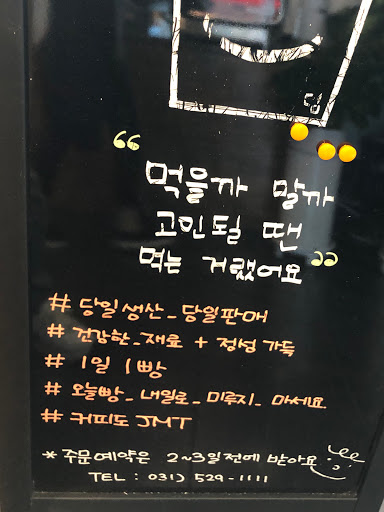 딩
“ 먹을까 말까
고민될 땐
먹는 거랬어요 ”
# 당일생산_당일판매
# 건강한_재료 + 정성 가득
# 1일 1빵
# 오늘빵_내일로_미루지_마세요
# 커피도 JMT
* 주문예약은 2~3일전에 받아요
TEL : 031) 529-1111